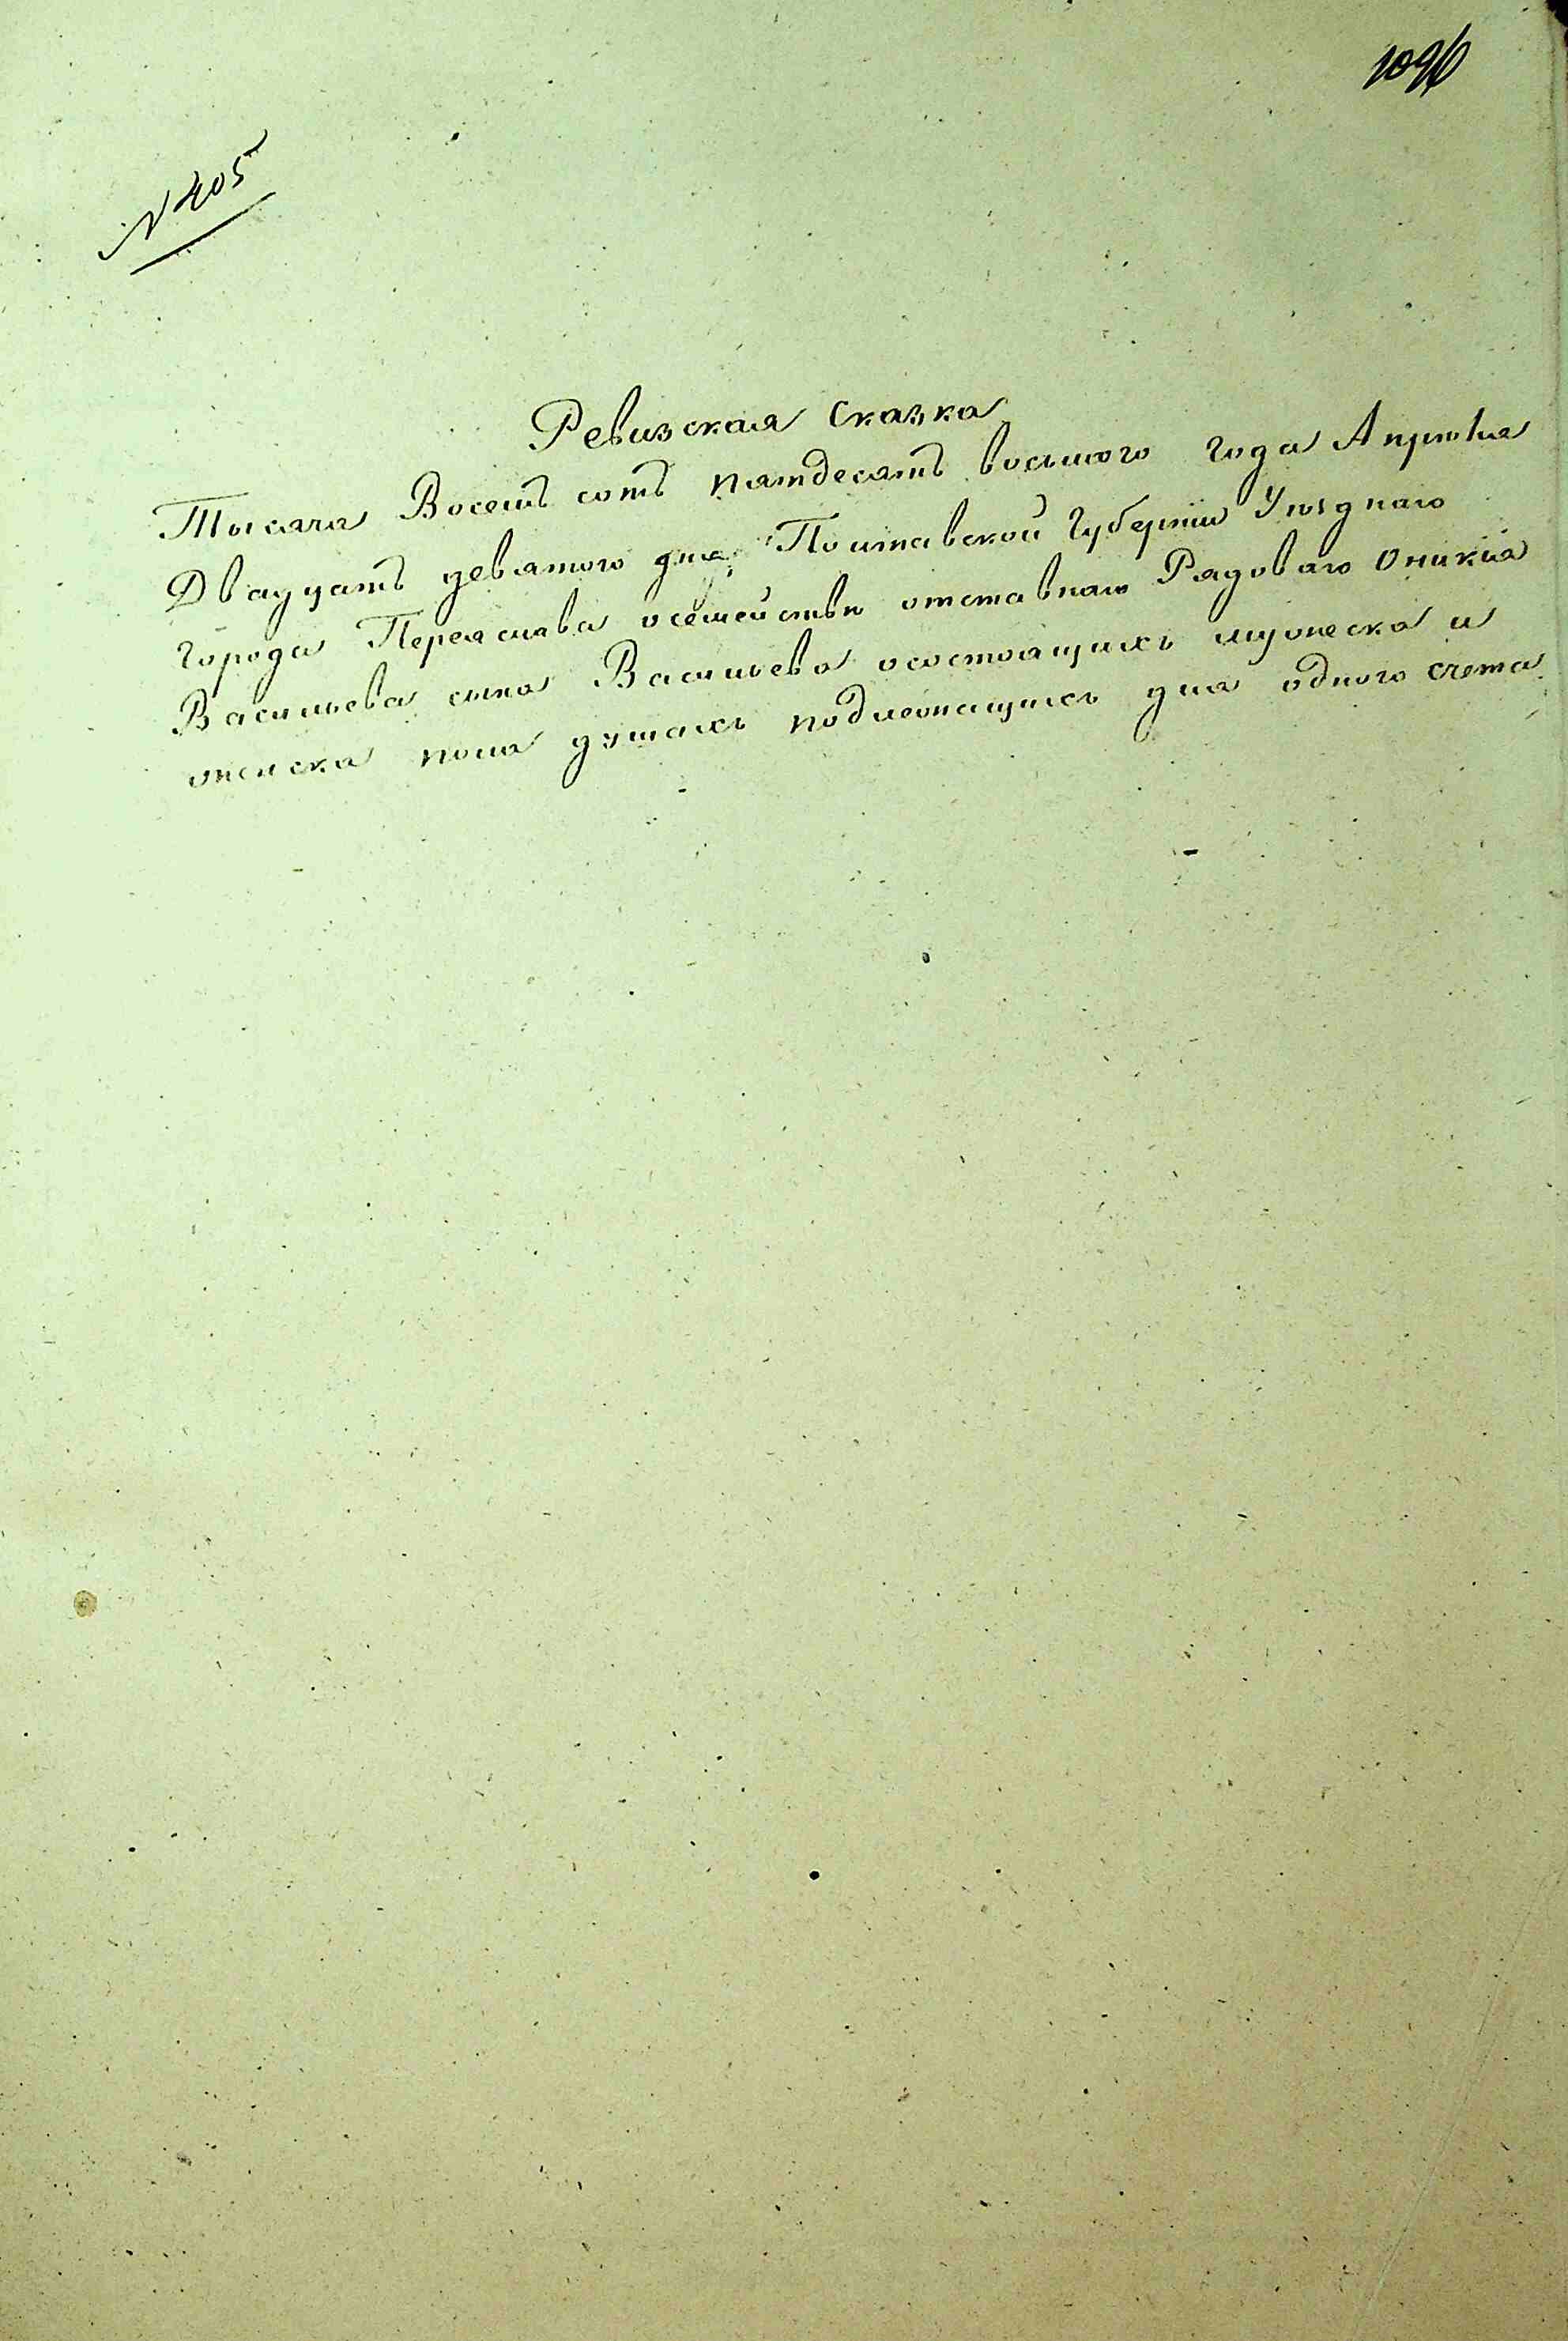 1096
N 405
Ревизская Сказка
Тысяча Восемъ сотъ пятдесятъ восьмого года Апрѣля
Двадцатъ девятого дня Полтавской Губерніи Уѣзднаго
города Переяслава осемействѣ отставнаго Рядоваго Оникія
Васильева сына Васильева осостоящихъ мужеска и
женска пола душахъ подлежащихъ для одного счета